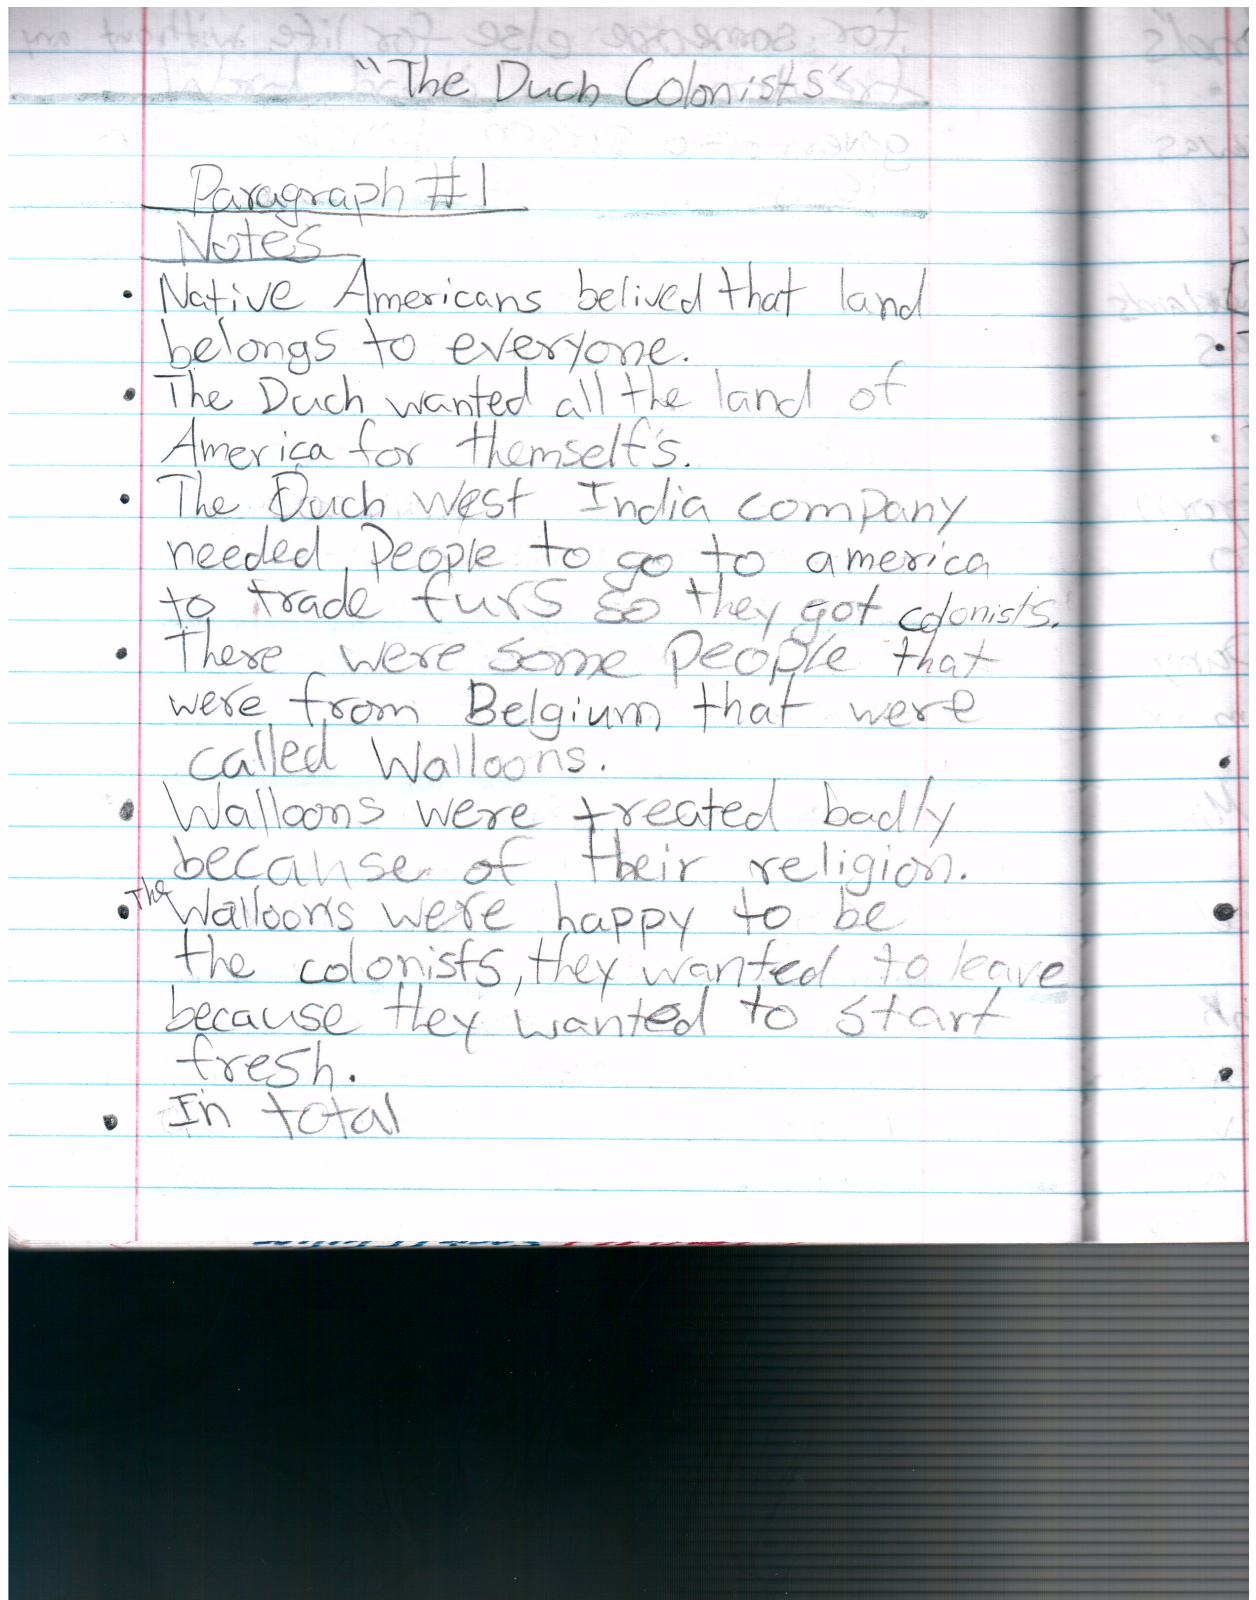 "The Duch Colonists"
Paragraph #1
Notes
• Native Americans belived that land
belongs to everyone.
• The Duch wanted all the land of
America for themself's.
• The Duch west India company
needed people to go to america
to trade furs so they got colonists.
• There were some people that
were from Belgium that were
called Walloons.
• Walloons were treated badly
because of their religion.
• The Walloons were happy to be
the colonists, they wanted to leave
because they wanted to start
fresh.
• In total